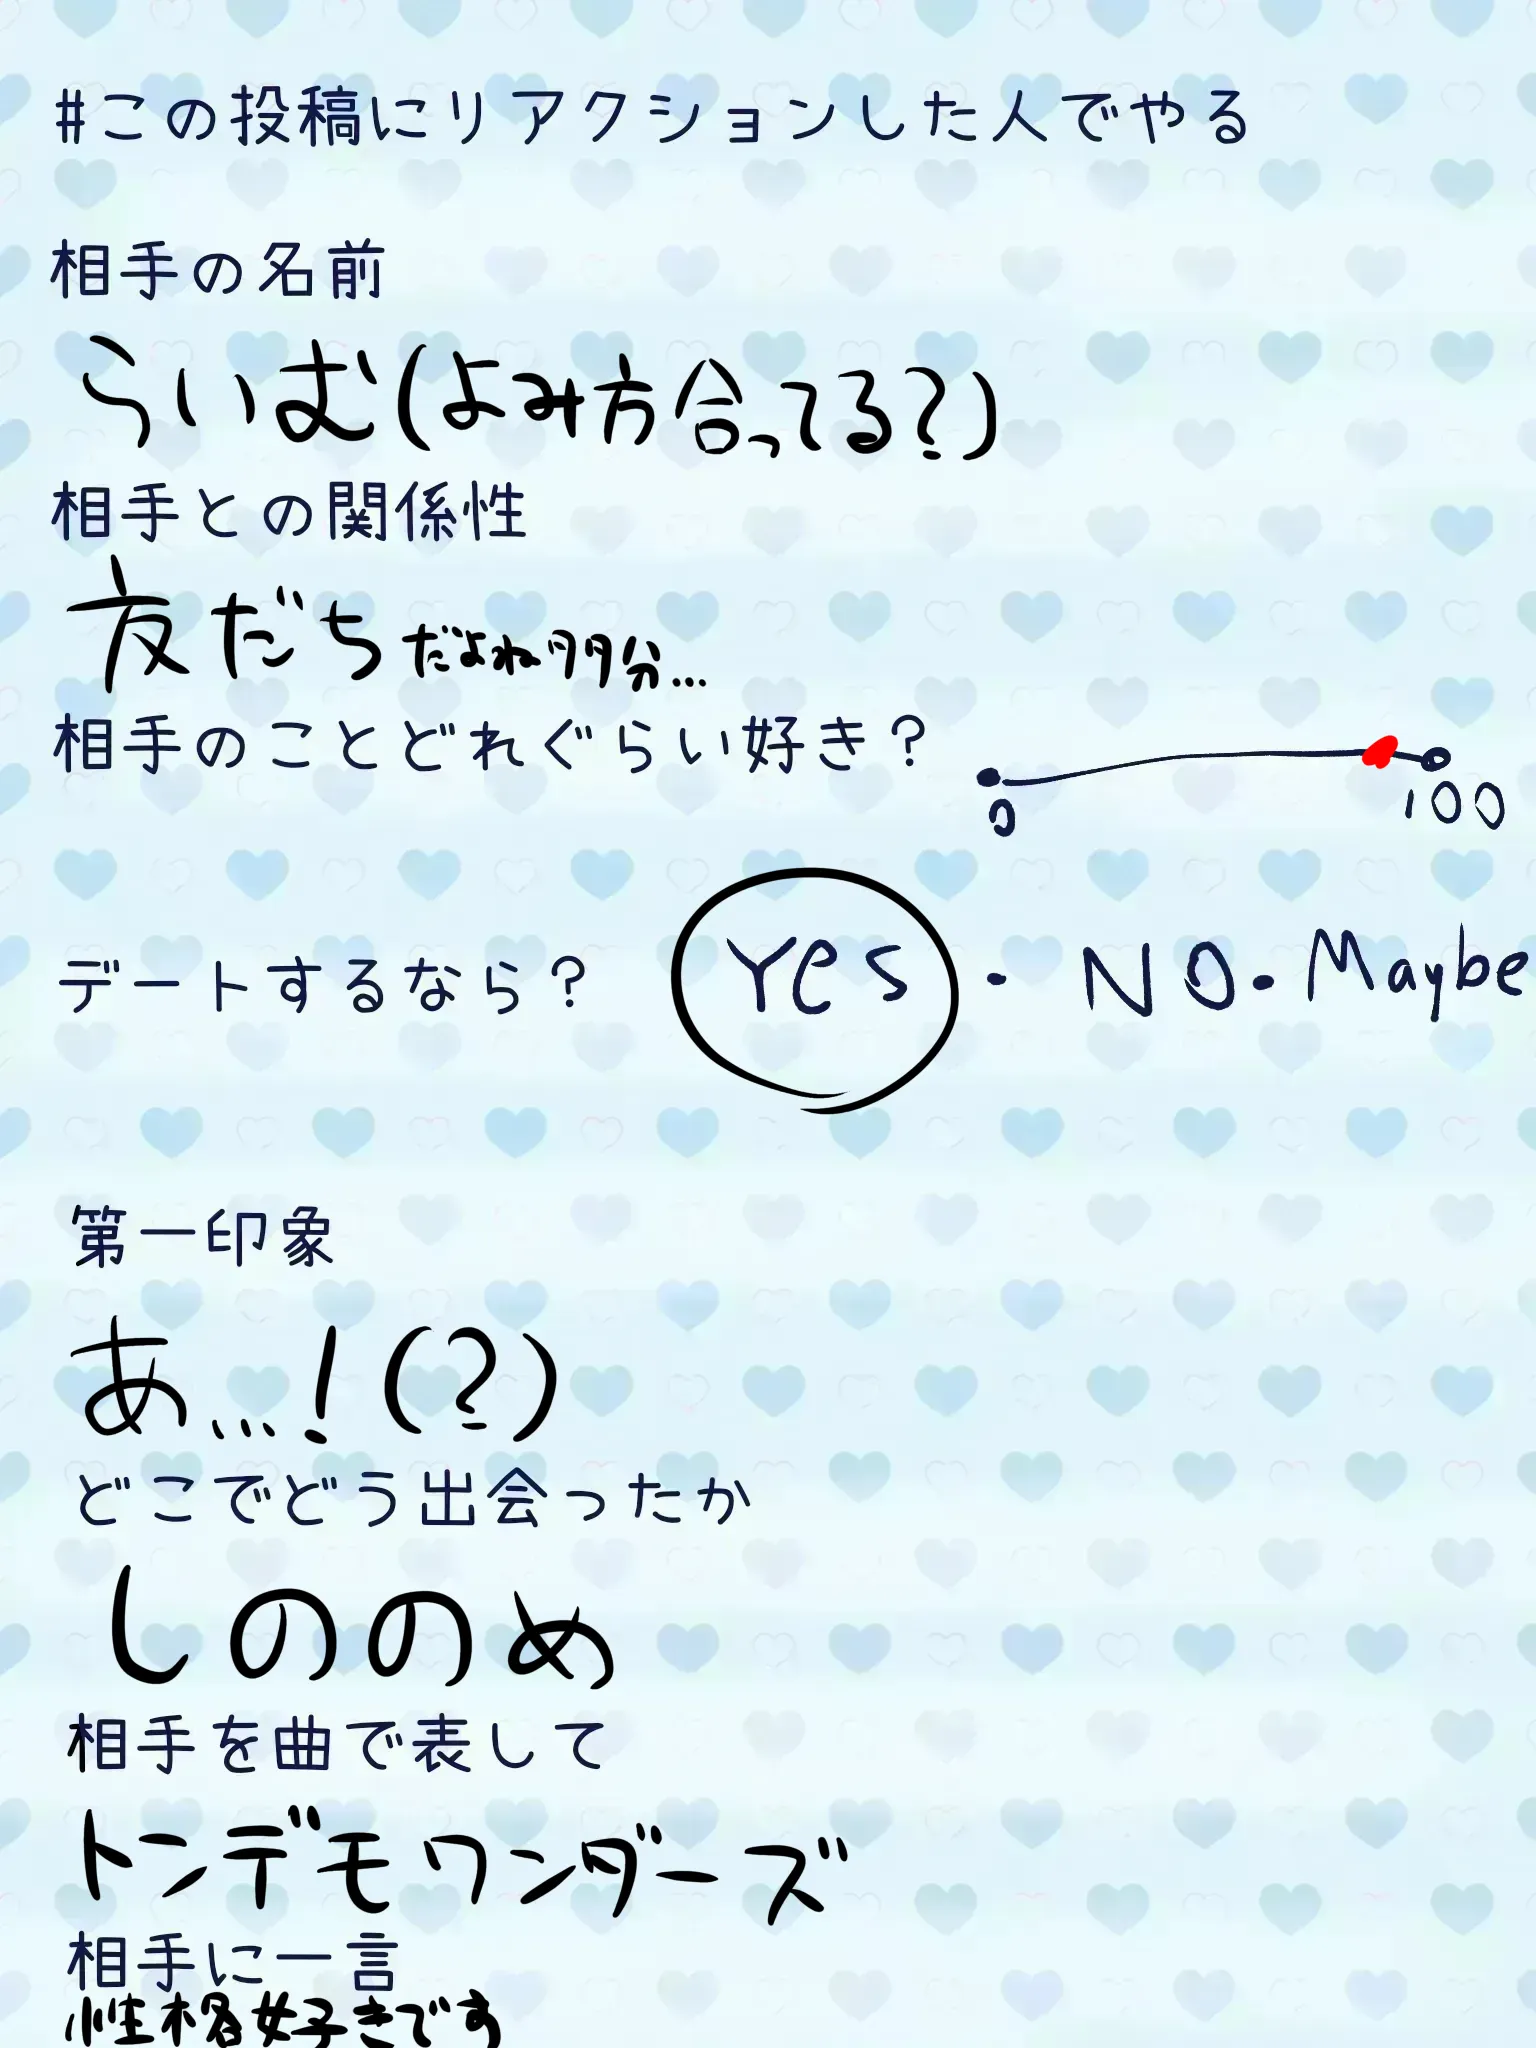 #この投稿にリアクションした人でやる
相手の名前
らいむ(よみ方合ってる?)
相手との関係性
友だちだよね多分...
相手のことどれぐらい好き？
0 100
デートするなら？ Yes・NO・Maybe
第一印象
あ...!(?)
どこでどう出会ったか
しののめ
相手を曲で表して
トンデモワンダーズ
相手に一言
性格好きです